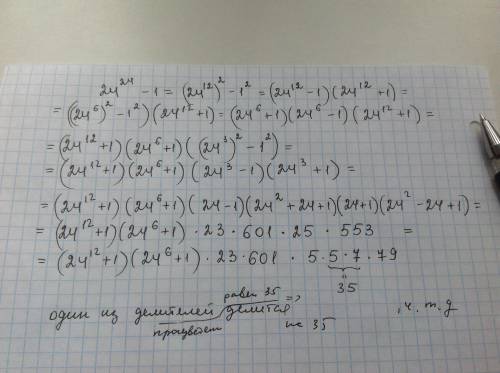 24²⁴ - 1 = (24¹²)² - 1² = (24¹² - 1)(24¹² + 1) =
= ((24⁶)² - 1²)(24¹² + 1) = (24⁶ + 1)(24⁶ - 1)(24¹² + 1) =
= (24¹² + 1)(24⁶ + 1)((24³)² - 1²) =
= (24¹² + 1)(24⁶ + 1)(24³ - 1)(24³ + 1) =
= (24¹² + 1)(24⁶ + 1)(24 - 1)(24² + 24 + 1)(24 + 1)(24² - 24 + 1) =
= (24¹² + 1)(24⁶ + 1) · 23 · 601 · 25 · 553 =
= (24¹² + 1)(24⁶ + 1) · 23 · 601 · 5 · 5 · 7 · 79
35
равен 35
один из делителей делится =>, ч. т. д
на 35